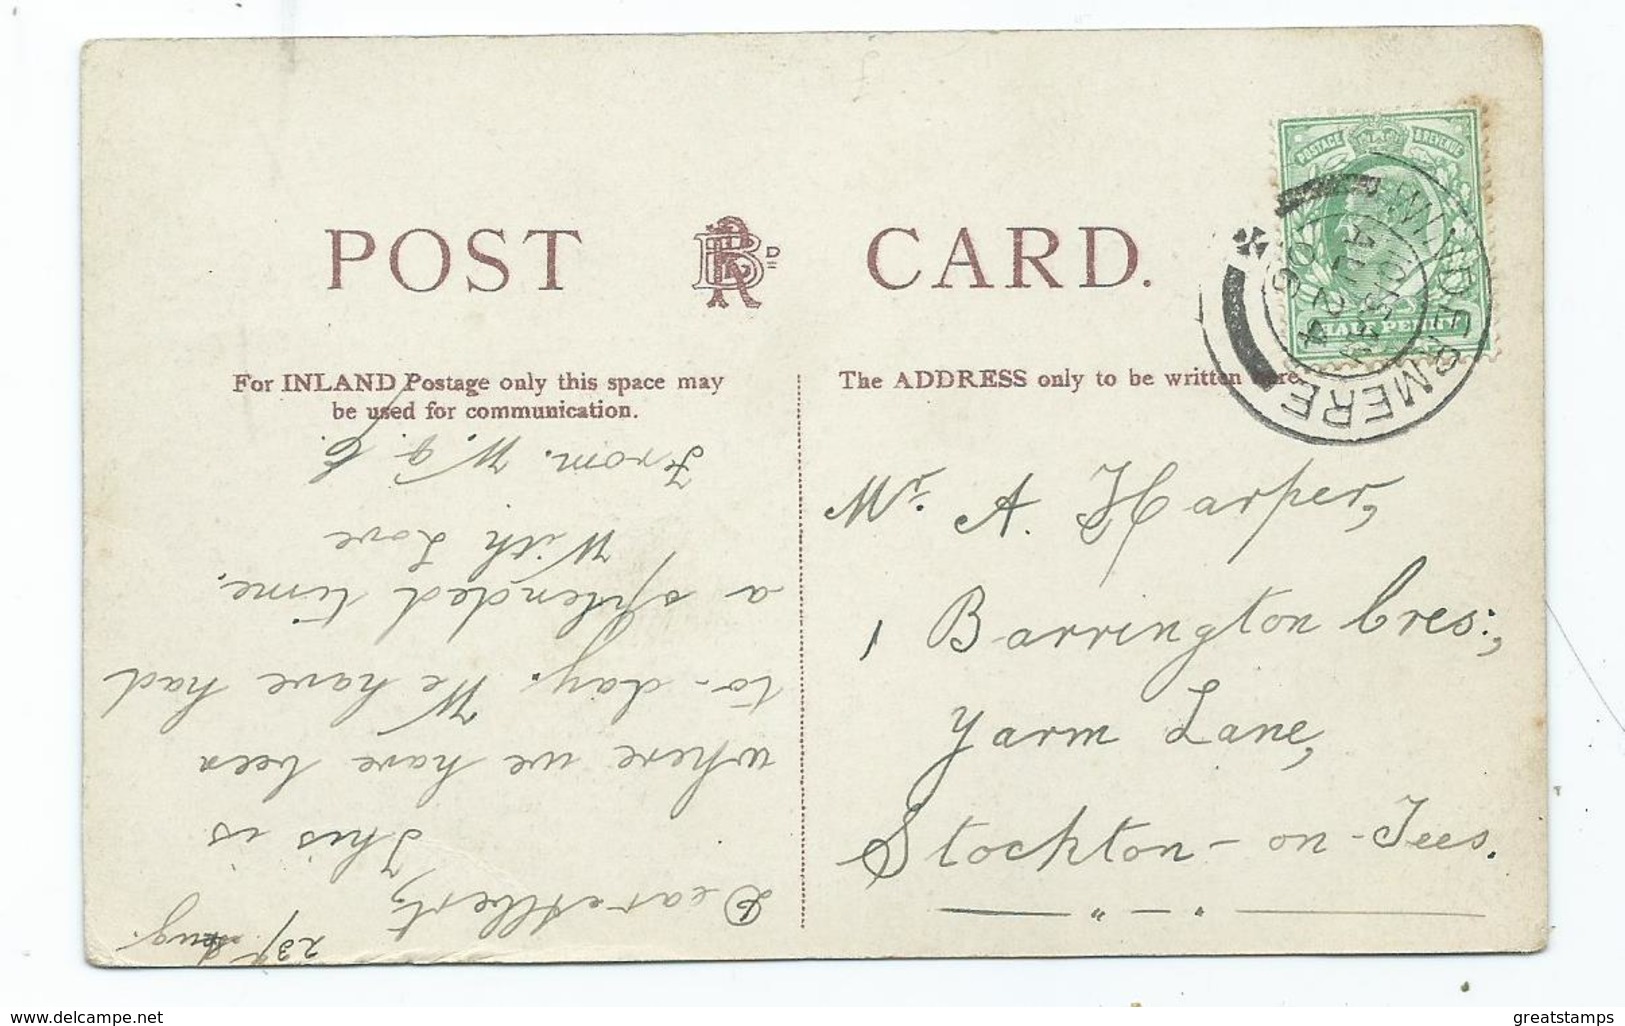 POST RBD CARD.
For INLAND Postage only this space may
be used for communication.
The ADDRESS only to be written here.
POSTAGE & REVENUE
HALF PENNY
WINDERMERE
AU 24
06
Mr. A. Harper,
1 Barrington Cres:,
Yarm Lane,
Stockton-on-Tees.
23/ Aug.
Dear Albert,
This is
where we have been
to-day. We have had
a splended time.
With Love
From. W. G. C.
www.delcampe.net
greatstamps